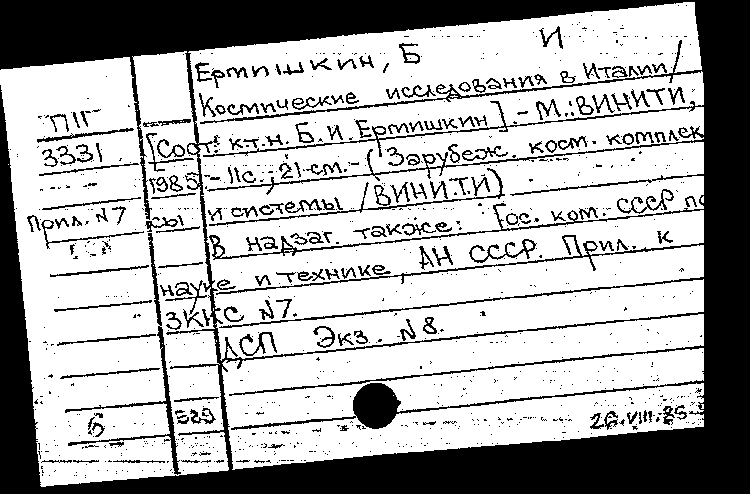 Ермишкин, Б И
Космические исследования в Италии/
ПІГ
3331
[Сост. к.т.н. Б.И. Ермишкин]. - М.: ВИНИТИ,
1985 - 11с.; 21 см. - (Зарубеж. косм. комплек
Прил. N7
сы и системы /ВИНИТИ)
В надзаг. также: Гос. ком. СССР по
науке и технике, АН СССР. Прил. к
ЗККС N7.
ДСП Экз. N8.
6 529
26.VIII.85